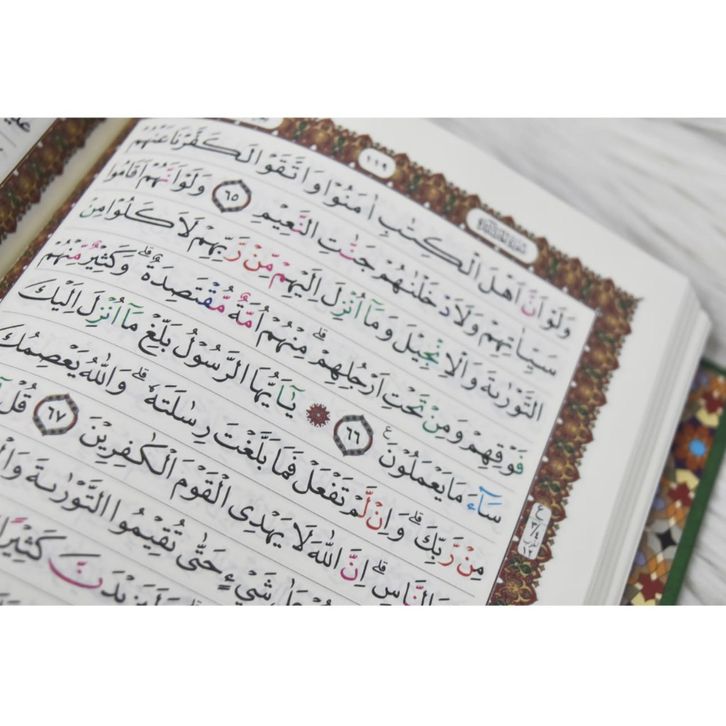 ١١٩
وَلَوْ اَنَّ اَهْلَ الْكِتٰبِ اٰمَنُوْا وَاتَّقَوْا لَكَفَّرْنَا عَنْهُمْ
سَيِّاٰتِهِمْ وَلَاَدْخَلْنٰهُمْ جَنّٰتِ النَّعِيْمِ ٦٥ وَلَوْ اَنَّهُمْ اَقَامُوا
التَّوْرٰىةَ وَالْاِنْجِيْلَ وَمَآ اُنْزِلَ اِلَيْهِمْ مِّنْ رَّبِّهِمْ لَاَكَلُوْا مِنْ
فَوْقِهِمْ وَمِنْ تَحْتِ اَرْجُلِهِمْ ۗ مِنْهُمْ اُمَّةٌ مُّقْتَصِدَةٌ ۗ وَكَثِيْرٌ مِّنْهُمْ
سَآءَ مَا يَعْمَلُوْنَ ࣖ ٦٦ ۞ يٰٓاَيُّهَا الرَّسُوْلُ بَلِّغْ مَآ اُنْزِلَ اِلَيْكَ
مِنْ رَّبِّكَ ۗ وَاِنْ لَّمْ تَفْعَلْ فَمَا بَلَّغْتَ رِسٰلَتَهٗ ۗ وَاللّٰهُ يَعْصِمُكَ
النَّاسِ ۗ اِنَّ اللّٰهَ لَا يَهْدِى الْقَوْمَ الْكٰفِرِيْنَ ٦٧ قُلْ
شَيْءٍ حَتّٰى تُقِيْمُوا التَّوْرٰىةَ
كَثِيْرًا